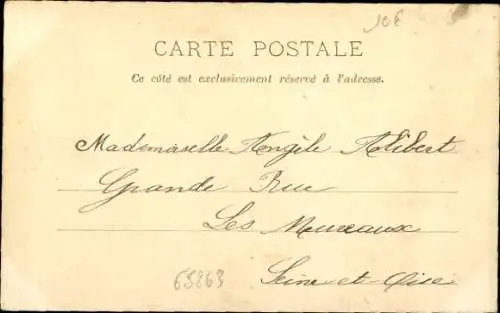 10€
CARTE POSTALE
Ce côté est exclusivement réservé à l'adresse.
Mademoiselle Angèle Alibert
Grande Rue
Les Mureaux
Seine-et-Oise
65863